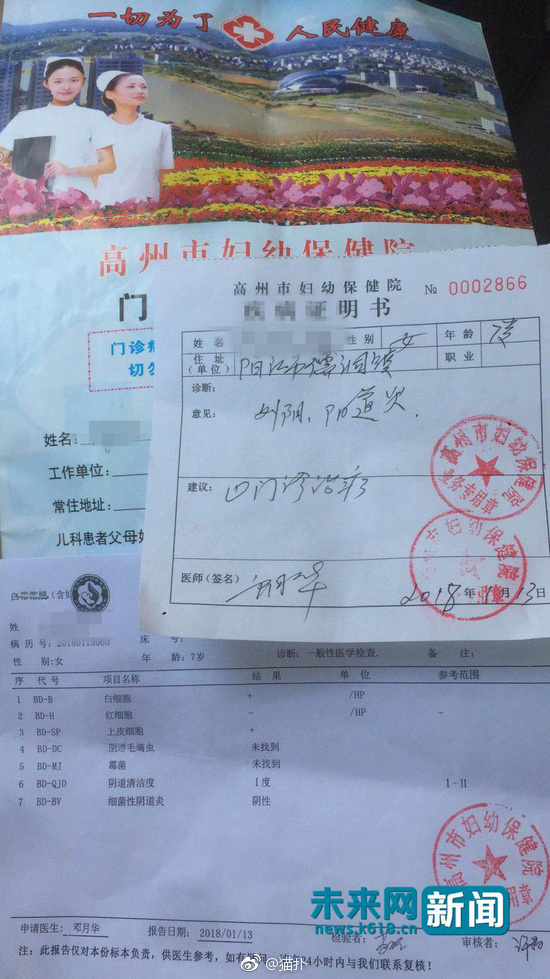 一切为了 人民健康
高州市妇幼保健院
门
门诊病
切勿
姓名:
工作单位:
常住地址:
儿科患者父母姓
高州市妇幼保健院
疾病证明书
№ 0002866
姓名 性别 女 年龄
住址
(单位) 职业
诊断:
意见: 外阴、阴道炎.
建议: 门诊治疗
医师(签名)
2018年1月13日
高州市妇幼保健院
业务专用章
高州市妇幼保健院
白带常规
姓
病 历 号: 20180113060 床 号:
性 别:女 年 龄:7岁 诊断:一般性医学检查. 备 注:
序 代号 项目名称 结 果 单 位 参考范围
1 BD-B 白细胞 + /HP
2 BD-H 红细胞 - /HP
3 BD-SP 上皮细胞 +
4 BD-DC 阴道毛滴虫 未找到
5 BD-MJ 霉菌 未找到
6 BD-QJD 阴道清洁度 I度 I-II
7 BD-BV 细菌性阴道炎 阴性
高州市妇幼保健院
未来网 新闻
news.k618.cn
申请医生: 邓月华 报告日期: 2018/01/13 检验者: 审核者:
注:此报告仅对本份标本负责,供医生参考,如有 问 24小时内与我们联系复核!
@猫扑